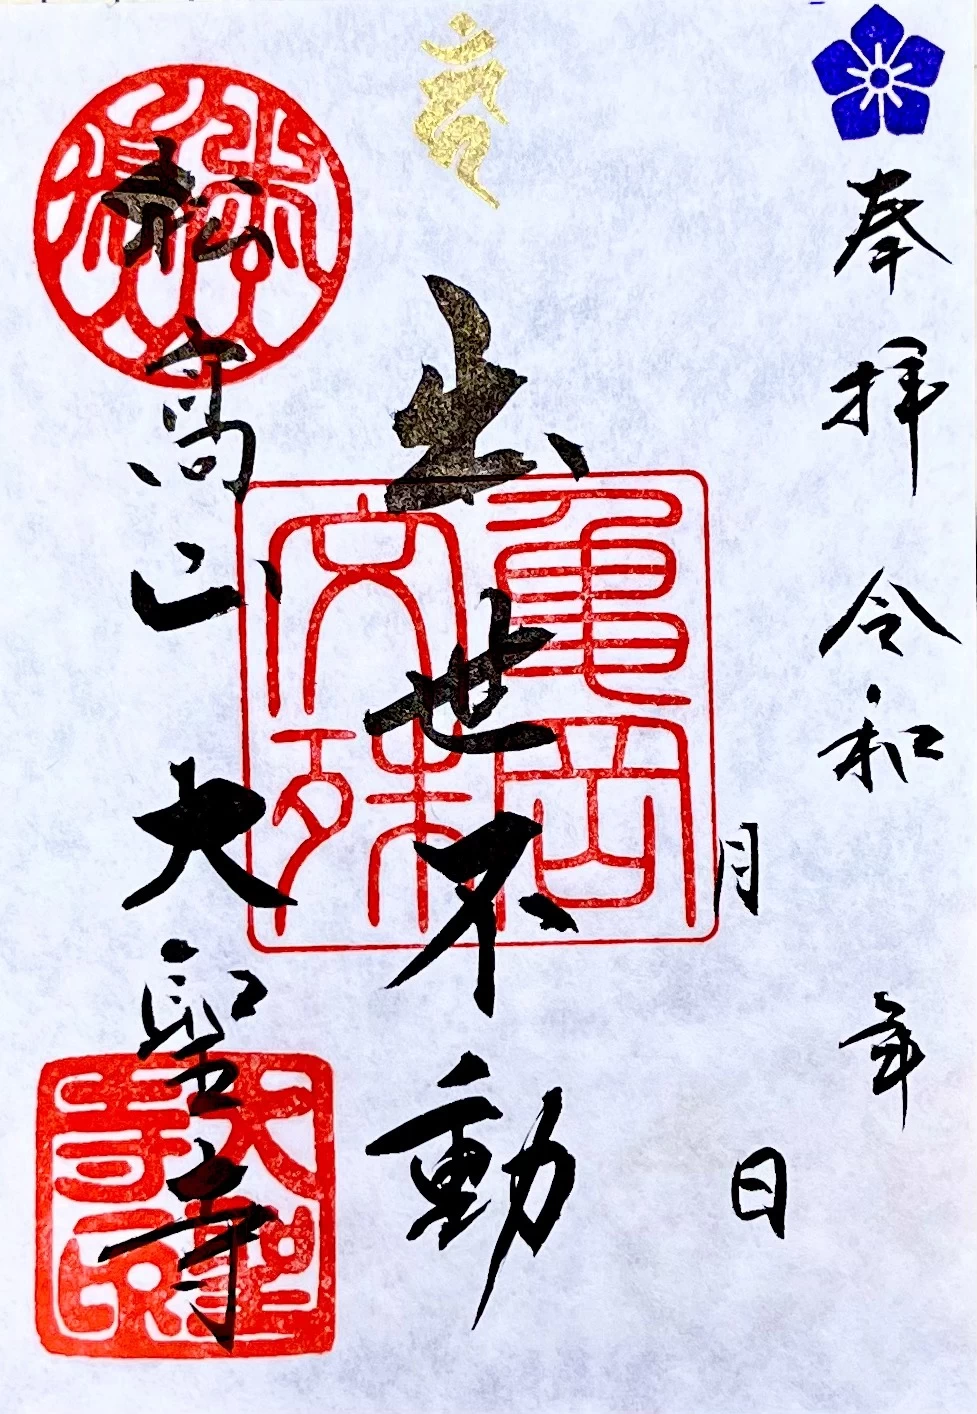 奉拝 令和 年
月 日
出世不動
松高山大聖寺
亀岡
文殊
大聖
寺印